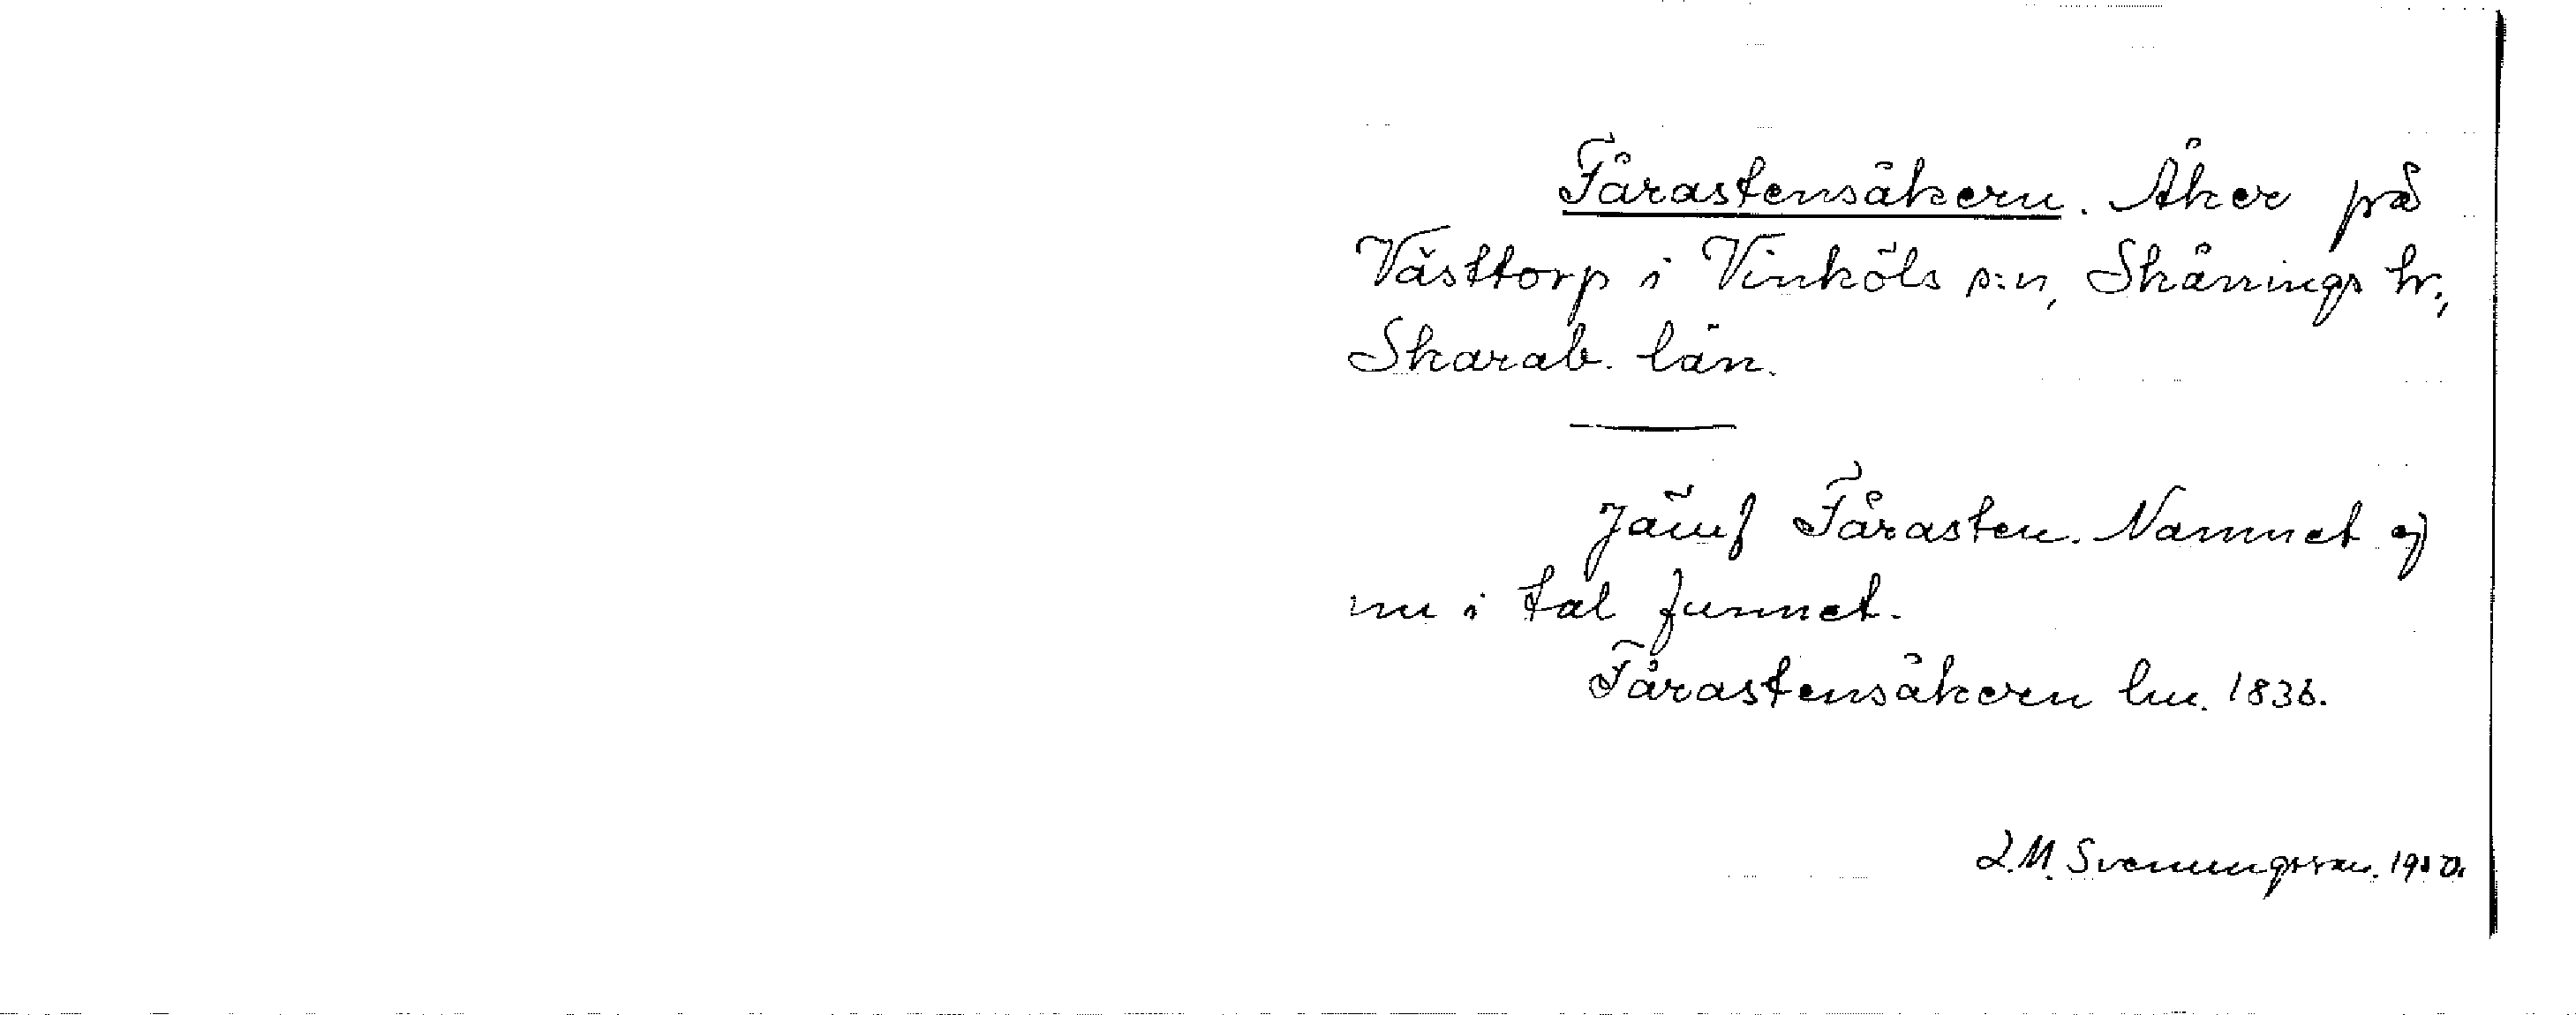 Fårastensåkern. Åker på
Västtorp i Vinköls s:n, Skånings hr.,
Skarab. län.
Jämf Fårasten. Namnet ej
nu i tal funnet.
Fårastensåkern lm. 1836.
L.M. Svenungsson. 19